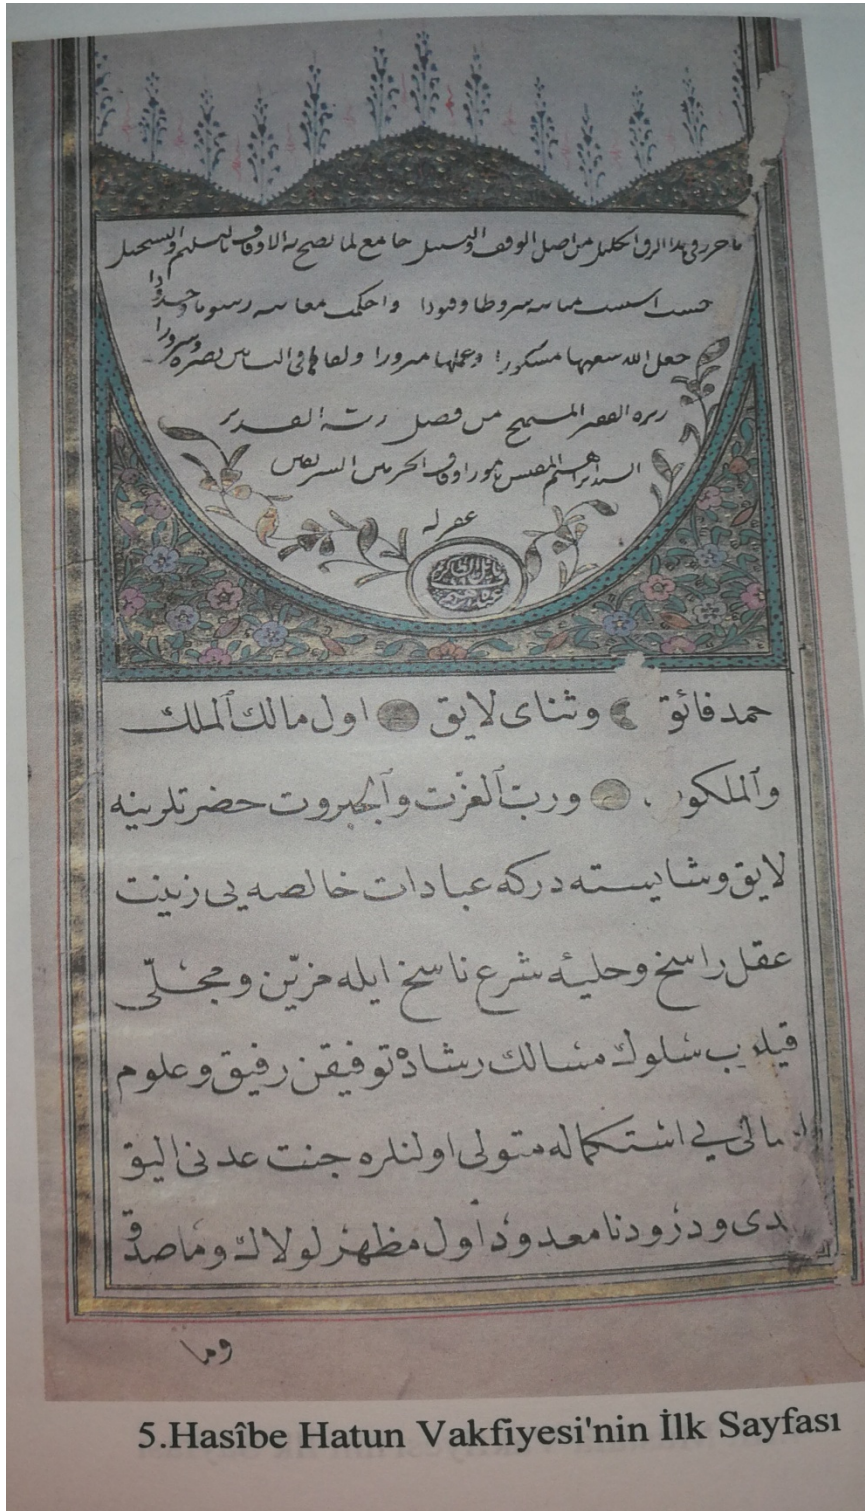 ما حرر فى هذا الرق الجليل من اصل الوقف والتسبيل جامع لما تصح به الاوقاف بالتسليم والتسجيل
شروطا وقيودا واحكمت رسوما وحدودا
جعل الله سعيها مشكورا وعملها مبرورا ولقاها نضرة وسرورا
الفقير من فضل ربه القدير
السيد ابراهيم المفتش بامور اوقاف الحرمين الشريفين
غفر له
حمد فائق وثناى لايق اول مالك ٱلملك
وٱلملكوت ورب ٱلعزّت وٱلجبروت حضرتلرينه
لايق وشايسته دركه عبادات خالصه يى زينت
عقل راسخ وحليۀ شرع ناسخ ايله مزيّن ومجلّى
قيلوب سلوك مسالك رشاده توفيقن رفيق وعلوم
مالى يى استكماله متولى اولنلره جنت عدنى اليق
ودرود نامعدود اول مظهر لولاك وما صدق
وما
5.Hasîbe Hatun Vakfiyesi'nin İlk Sayfası